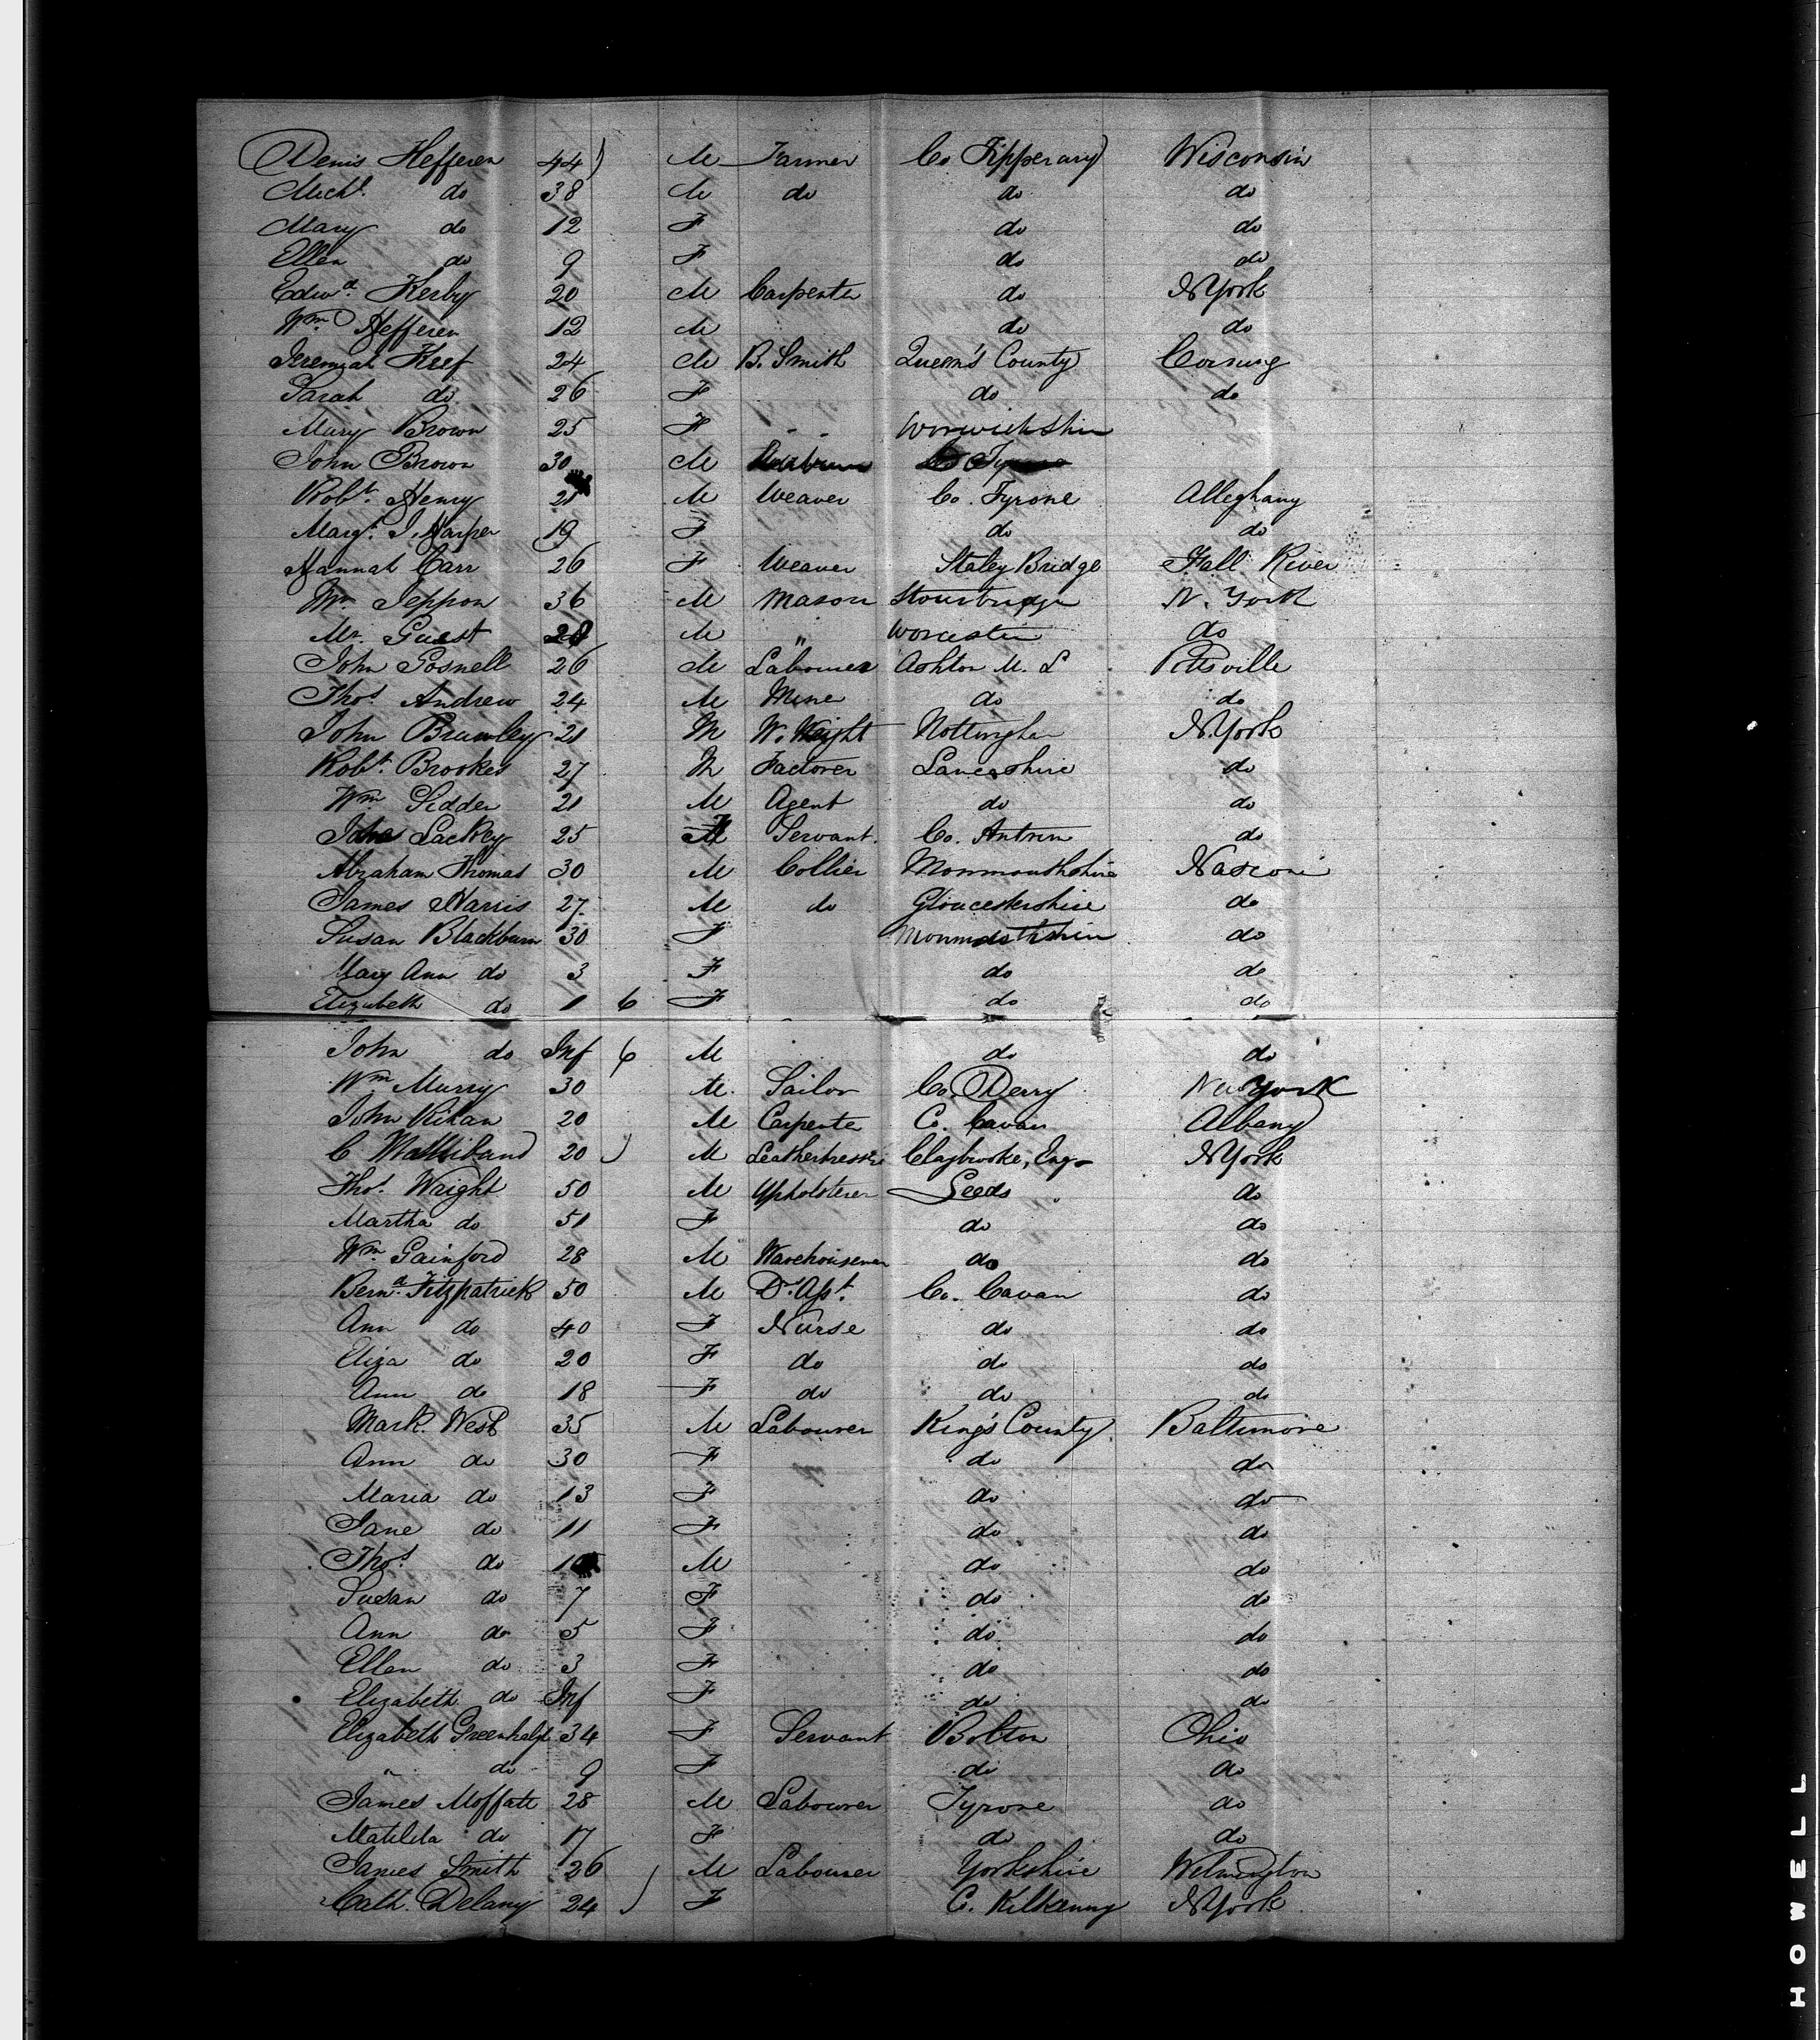 Denis Hefferen 44 M Farmer Co Tipperary Wisconsin
Michl. do 38 M do do do
Mary do 12 F do do
Ellen do 9 F do do
Edwd. Kerby 20 M Carpenter do N York
Wm Hefferen 12 M do do
Jeremiah Keef 24 M B. Smith Queen's County Corning
Sarah do 26 F do do
Mary Brown 25 F Worwickshire
John Brown 30 M Co Tyrone
Robt. Henry 21 M Weaver Co. Tyrone Alleghany
Margt. J. Harper 19 F do do
Hannah Carr 26 F Weaver Staley Bridge Fall River
Wm Jeppon 36 M Mason Stourbridge N. York
Mr. Guest M " Worcester do
John Gosnell 26 M Labourer Ashton M. L Pottsville
Thos. Andrew 24 M Miner do do
John Brawley 21 M W. Wright Nottingham N. York
Robt. Brookes 27 M Factorer Lancashire do
Wm Sidder 21 M Agent do do
Lackey 25 F Servant. Co. Antrim do
Abraham Thomas 30 M Collier Monmouthshire
James Harris 27 M do Gloucestershire do
Susan Blackburn 30 F Monmouthshire do
Mary Ann do 3 F do do
Elizabeth do 1 6 F do do
John do Inf 6 M do do
Wm Murry 30 M. Sailor Co. Derry New York
John Kihan 20 M Carpenter C. Cavan Albany
C 20 M Leatherdresser Claybrooke, Eng N York
Thos. Wright 50 M Upholsterer Leeds do
Martha do 51 F do do
Wm Gainford 28 M Warehouseman do do
Bernd. Fitzpatrick 50 M Dr. Asst. Co. Cavan do
Ann do 40 F Nurse do do
Eliza do 20 F do do do
Ann do 18 F do do do
Mark. West 35 M Labourer King's County. Baltimore
Ann do 30 F do do
Maria do 13 F do do
Jane do 11 F do do
Thos. do 10 M do do
Susan do 7 F do do
Ann do 5 F do do
Ellen do 3 F do do
Elizabeth do Inf F do do
Elizabeth Greenhalgh 34 F Servant Bolton Ohio
" do 9 F do do
James Moffatt 28 M Labourer Tyrone do
Matilda do 17 F do do
James Smith 26 M Labourer Yorkshire Wilmington
Cath. Delany 24 F C. Kilkenny N York
HOWELL